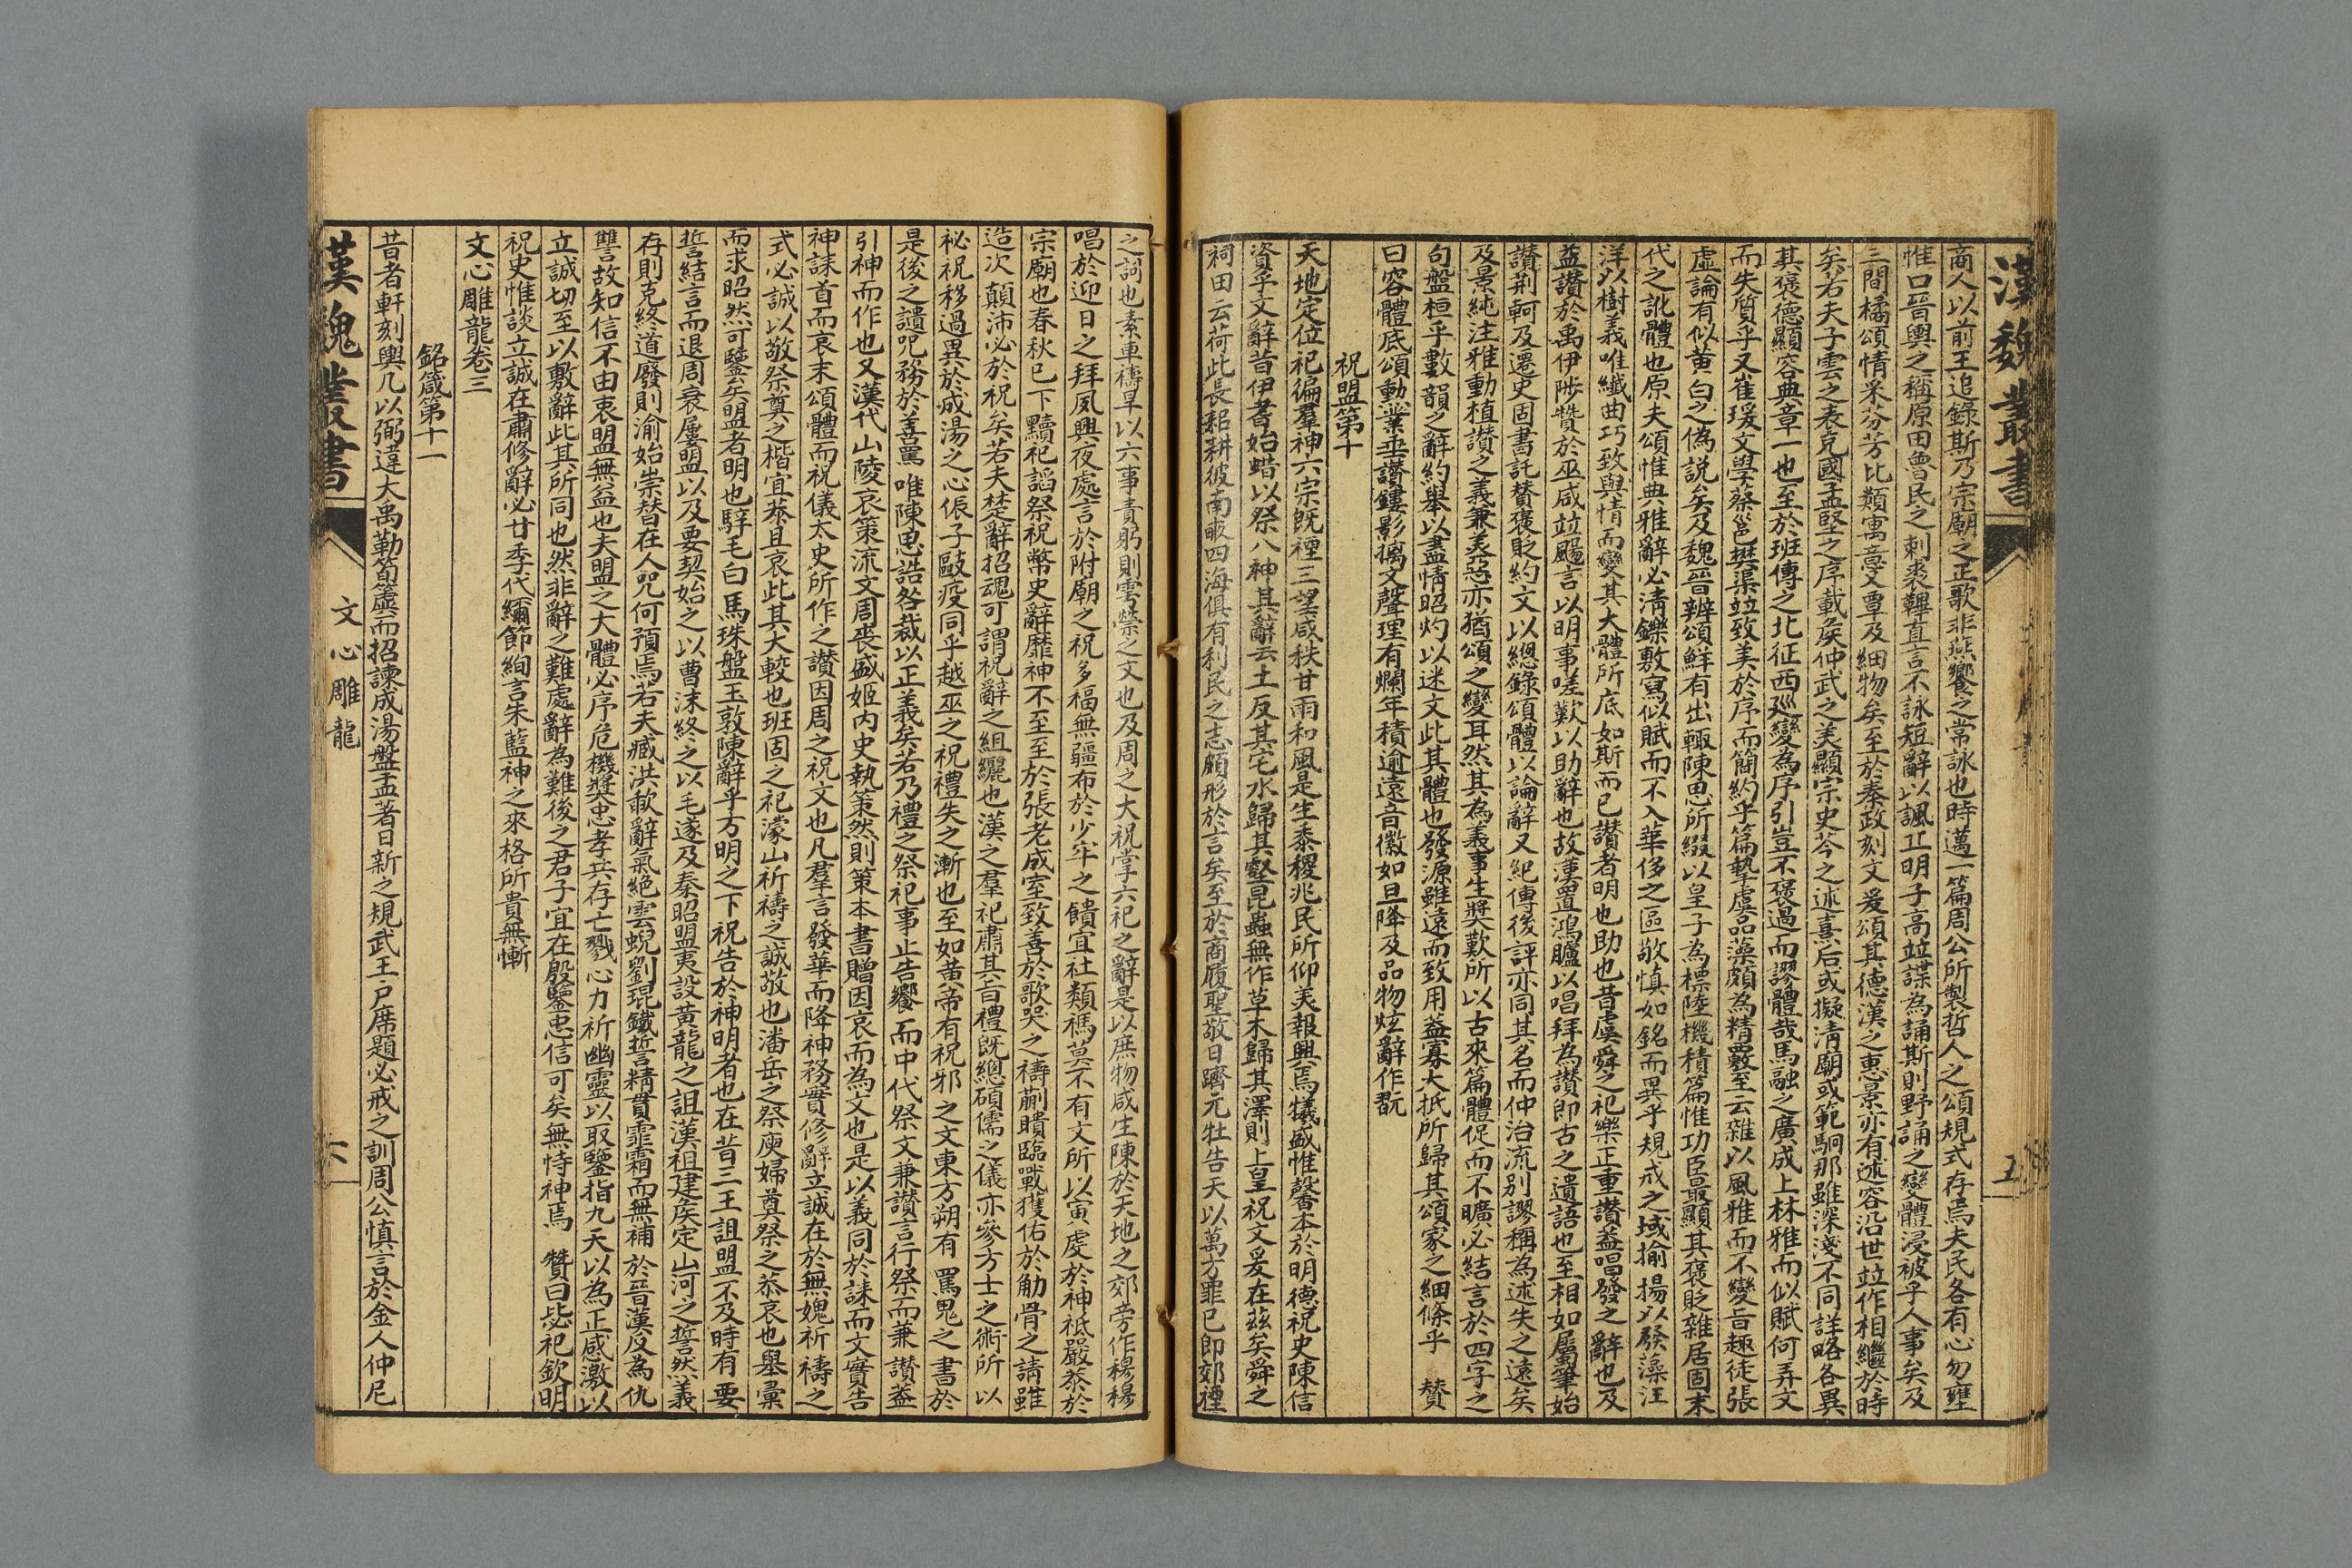 漢魏叢書
五
商人以前王追錄斯乃宗廟之正歌非燕饗之常詠也時邁一篇周公所製哲人之頌規式存焉夫民各有心勿壅
惟口晉輿之稱原田魯民之刺裘鞸直言不詠短辭以諷丘明子高竝諜為誦斯則野誦之變體浸被乎人事矣及
三閭橘頌情采芬芳比類寓意又覃及細物矣至於秦政刻文爰頌其德漢之惠景亦有述容沿世竝作相繼於時
矣若夫子雲之表充國孟堅之序戴矦仲武之美顯宗史岑之述熹后或擬清廟或範駉那雖深淺不同詳略各異
其褒德顯容典章一也至於班傳之北征西廵變為序引豈不褒過而謬體哉馬融之廣成上林雅而似賦何弄文
而失質乎又崔瑗文學蔡邕樊渠竝致美於序而簡約乎篇摯虞品藻頗為精覈至云雜以風雅而不變旨趣徒張
虛論有似黄白之偽説矣及魏晉辨頌鮮有出轍陳思所綴以皇子為標陸機積篇惟功臣最顯其褒貶雜居固末
代之訛體也原夫頌惟典雅辭必清鑠敷寫似賦而不入華侈之區敬慎如銘而異乎規戒之域揄揚以發藻汪
洋以樹義唯纖曲巧致與情而變其大體所底如斯而已讚者明也助也昔虞舜之祀樂正重讚葢唱發之辭也及
益讚於禹伊陟贊於巫咸竝颺言以明事嗟歎以助辭也故漢置鴻臚以唱拜為讚即古之遺語也至相如屬筆始
讚荆軻及遷史固書託賛褒貶約文以總錄頌體以論辭又紀傳後評亦同其名而仲治流別謬稱為述失之遠矣
及景純注雅動植讚之義兼美惡亦猶頌之變耳然其為義事生奬歎所以古來篇體促而不曠必結言於四字之
句盤桓乎數韻之辭約舉以盡情昭灼以迷文此其體也發源雖遠而致用葢寡大抵所歸其頌家之細條乎　賛
曰容體底頌勳業垂讚鏤影摛文聲理有爛年積逾遠音徽如旦降及品物炫辭作翫
祝盟第十
天地定位祀徧羣神六宗旣禋三望咸秩甘雨和風是生黍稷兆民所仰美報興焉犧盛惟馨本於明德祝史陳信
資乎文辭昔伊耆始蜡以祭八神其辭云土反其宅水歸其壑昆蟲無作草木歸其澤則上皇祝文爰在茲矣舜之
祠田云荷此長耜耕彼南畝四海俱有利民之志頗形於言矣至於商履聖敬日躋元牡告天以萬方罪已即郊禋
之詞也素車禱旱以六事責躬則雩禜之文也及周之大祝掌六祀之辭是以庶物咸生陳於天地之郊旁作穆穆
唱於迎日之拜夙興夜處言於附廟之祝多福無疆布於少牢之饋宜社類禡莫不有文所以寅虔於神祗嚴恭於
宗廟也春秋已下黷祀謟祭祝幣史辭靡神不至至於張老成室致善於歌哭之禱蒯瞶臨戰獲佑於觔骨之請雖
造次顛沛必於祝矣若夫楚辭招魂可謂祝辭之組纚也漢之羣祀肅其旨禮旣總碩儒之儀亦參方士之術所以
祕祝移過異於成湯之心侲子毆疫同乎越巫之祝禮失之漸也至如黄帝有祝邪之文東方朔有罵鬼之書於
是後之譴呪務於善罵唯陳思誥咎裁以正義矣若乃禮之祭祀事止告饗而中代祭文兼讃言行祭而兼讃葢
引神而作也又漢代山陵哀策流文周喪盛姬內史執策然則策本書贈因哀而為文也是以義同於誄而文實告
神誄首而哀末頌體而祝儀太史所作之讃因周之祝文也凡羣言發華而降神務實修辭立誠在於無媿祈禱之
式必誠以敬祭奠之楷宜恭且哀此其大較也班固之祀濛山祈禱之誠敬也潘岳之祭庾婦奠祭之恭哀也舉彙
而求昭然可鑒矣盟者明也騂毛白馬珠盤玉敦陳辭乎方明之下祝告於神明者也在昔三王詛盟不及時有要
誓結言而退周衰屢盟以及要契始之以曹沫終之以毛遂及秦昭盟夷設黄龍之詛漢祖建矦定山河之誓然義
存則克終道廢則渝始崇替在人呪何預焉若夫臧洪歃辭氣絶雲蜺劉琨鐵誓精貫霏霜而無補於晉漢反為仇
讐故知信不由衷盟無益也夫盟之大體必序危機奬忠孝共存亡戮心力祈幽靈以取鑒指九天以為正感激以
立誠切至以敷辭此其所同也然非辭之難處辭為難後之君子宜在殷鑒忠信可矣無恃神焉　贊曰毖祀欽明
祝史惟談立誠在肅修辭必甘季代彌飾絢言朱藍神之來格所貴無慚
文心雕龍卷三
銘箴第十一
昔者軒刻輿几以弼違大禹勒筍簴而招諫成湯盤盂著日新之規武王戶席題必戒之訓周公慎言於金人仲尼
漢魏叢書
文心雕龍
六